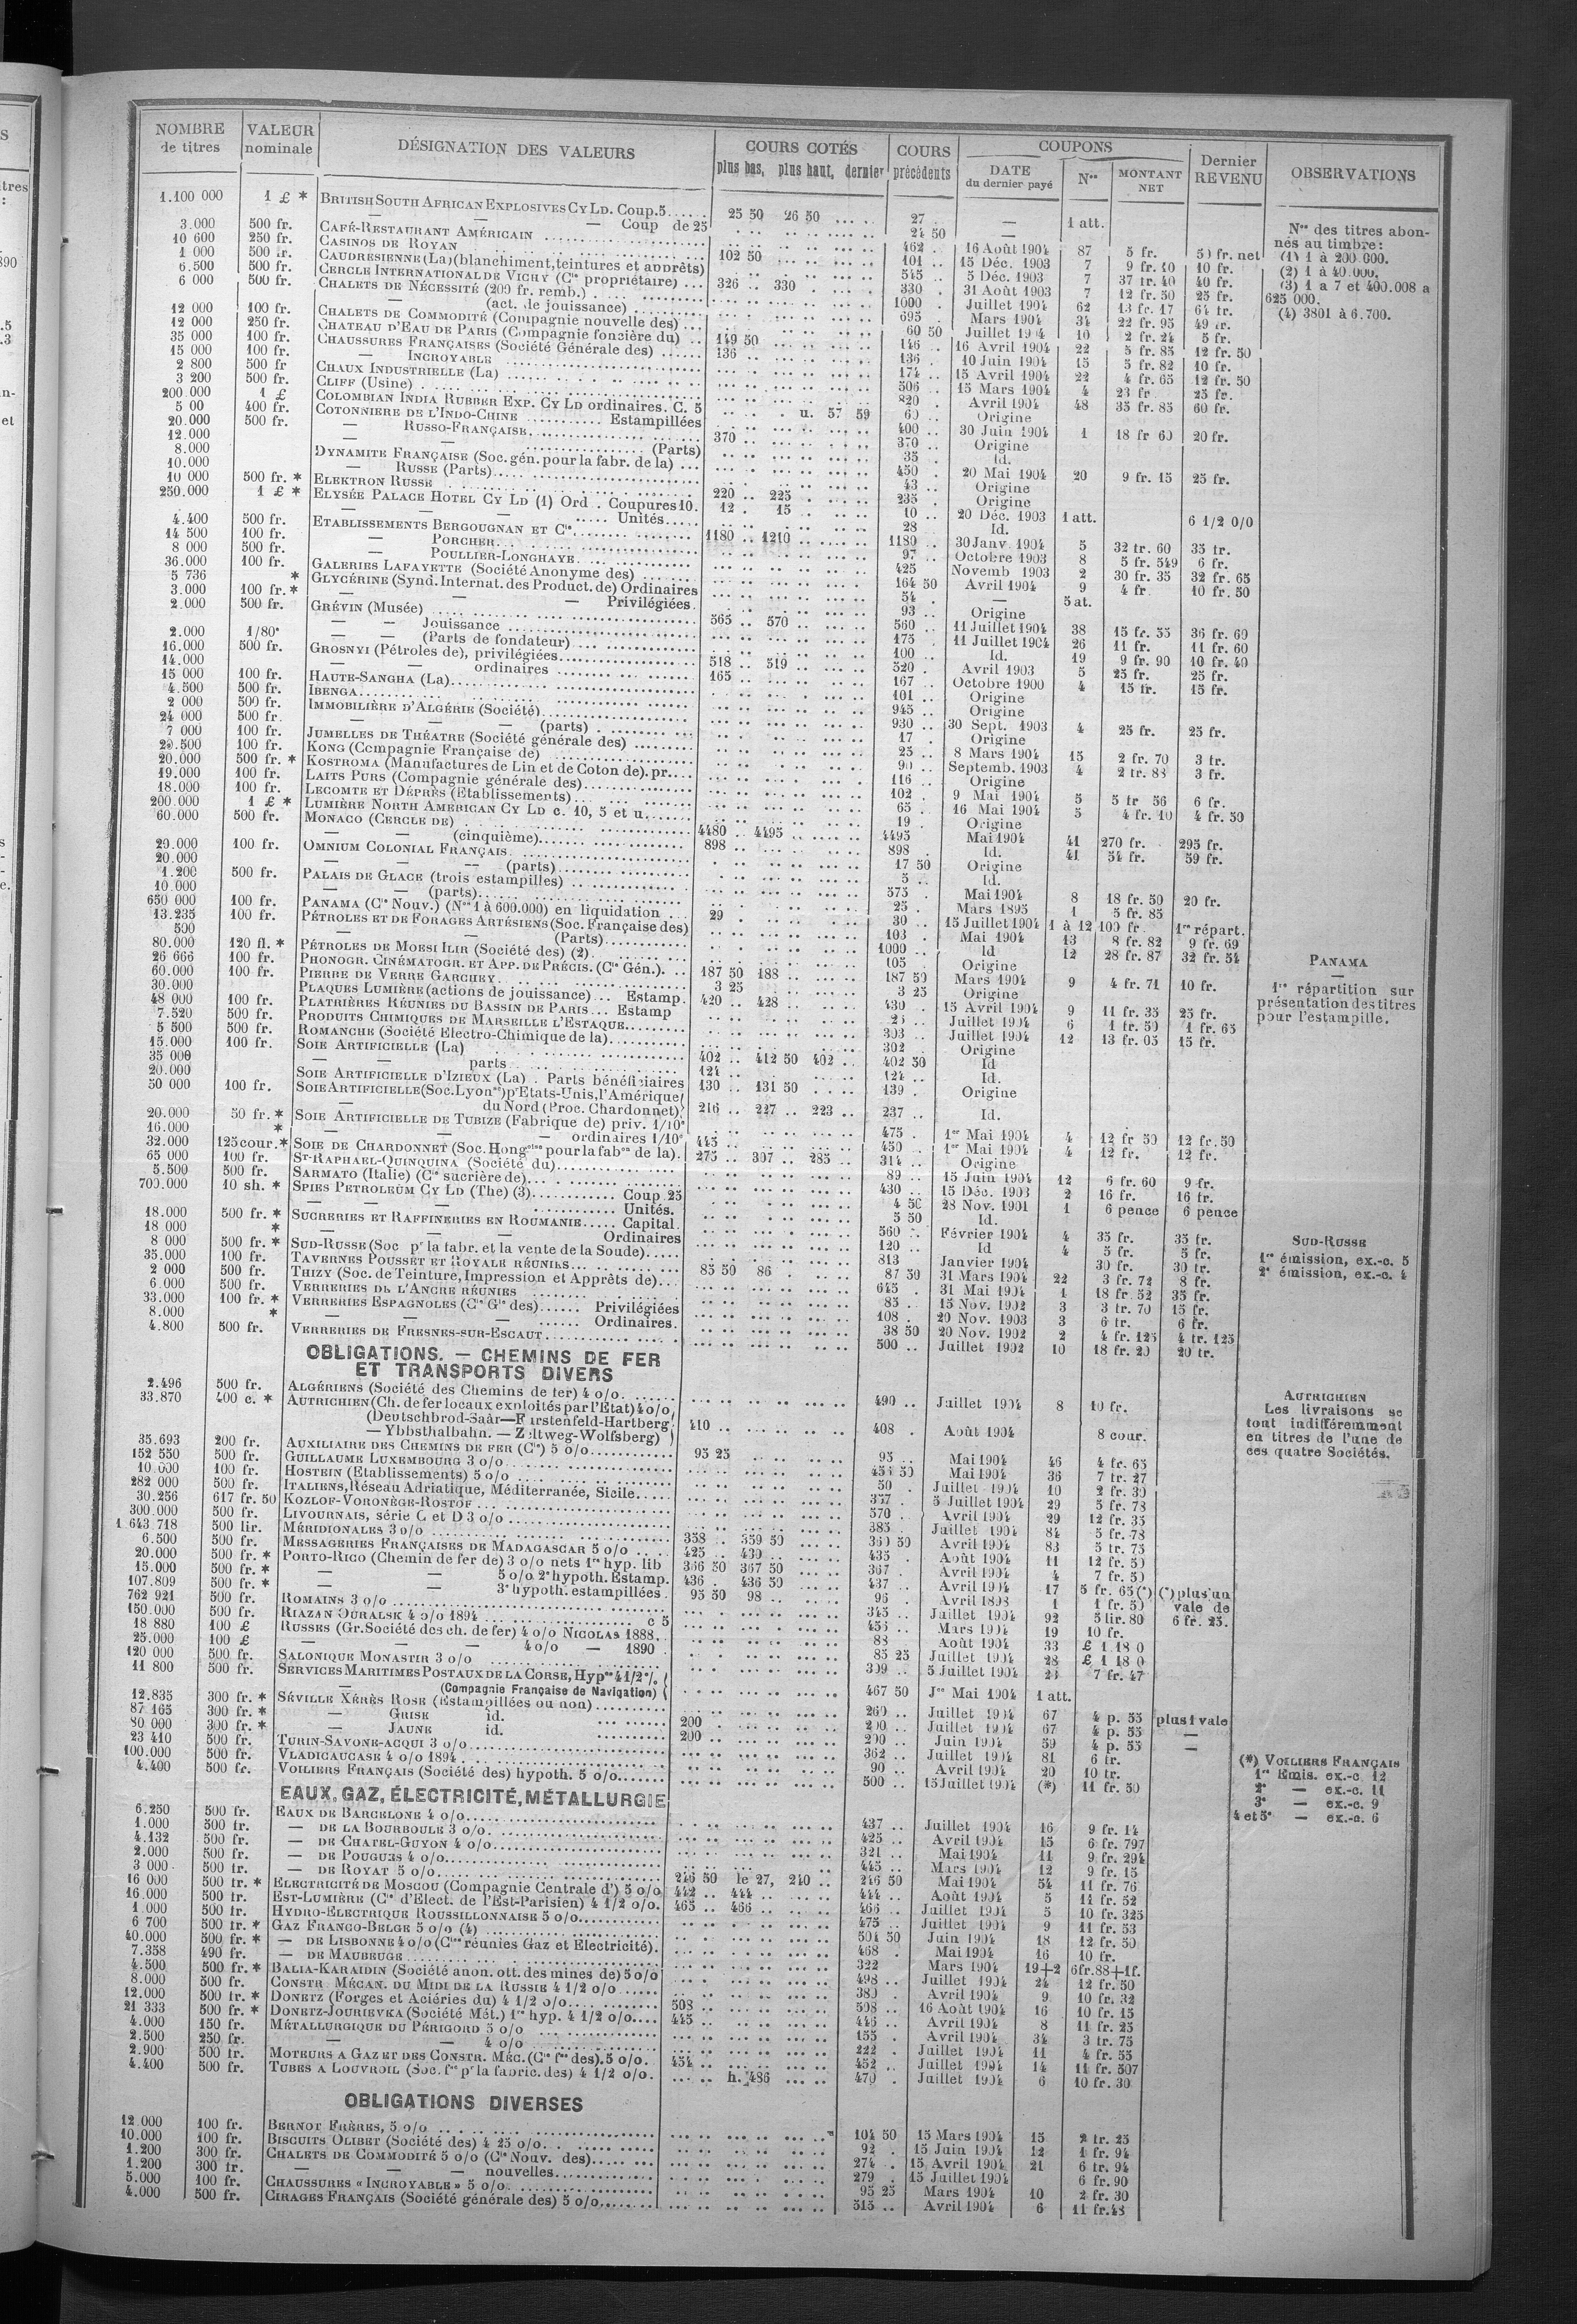 NOMBRE de titres | VALEUR nominale | DÉSIGNATION DES VALEURS | COURS COTÉS plus bas, plus haut, dernier | COURS précédents | COUPONS | Dernier REVENU | OBSERVATIONS
DATE du dernier payé | Nos | MONTANT NET
1.100 000 1 £ * BRITISH SOUTH AFRICAN EXPLOSIVES CY LD. Coup. 5...... 25 50 26 50 27 .. — 1 att.
— — Coup de 25 24 50 —
3.000 500 fr. CAFÉ-RESTAURANT AMÉRICAIN 462 16 Août 1904 87 5 fr. 5) fr. net
10 600 250 fr. CASINOS DE ROYAN 102 50 101 15 Déc. 1903 7 9 fr. 40 10 fr.
1 000 500 fr. CAUDRÉSIENNE (La) (blanchiment, teintures et apprêts) 545 5 Déc. 1903 7 37 fr. 40 40 fr.
6.500 500 fr. CERCLE INTERNATIONAL DE VICHY (Cie propriétaire) ... 326 .. 330 330 31 Août 1903 7 12 fr. 50 25 fr.
6 000 500 fr. CHALETS DE NÉCESSITÉ (200 fr. remb.) 1000 Juillet 1904 62 13 fr. 17
— (act. de jouissance) 695 Mars 1904 34 22 fr. 95
12 000 100 fr. CHALETS DE COMMODITÉ (Compagnie nouvelle des) 60 50 10 2 fr. 24 5 fr.
12 000 250 fr. CHATEAU D'EAU DE PARIS (Compagnie foncière du) 149 50 146 16 Avril 1904 22 5 fr. 85 12 fr. 50
35 000 100 fr. CHAUSSURES FRANÇAISES (Société Générale des) 136 136 10 Juin 1904 15 5 fr. 82 10 fr.
15 000 100 fr. — INCROYABLE 174 15 Avril 1904 22 4 fr. 65 12 fr. 50
2 800 500 fr CHAUX INDUSTRIELLE (La) 506 15 Mars 1904 4 23 fr 25 fr.
3 200 500 fr. CLIFF (Usine) 820 Avril 1904 48 35 fr. 85 60 fr.
200.000 1 £ COLOMBIAN INDIA RUBBER EXP. CY LD ordinaires. C. 5 u. 57 59 60 Origine
5 00 400 fr. COTONNIERE DE L'INDO-CHINE Estampillées 400 30 Juin 1904 1 18 fr 60 20 fr.
20.000 500 fr. — RUSSO-FRANÇAISE 370 370 Origine
12.000 — — (Parts) 35 Id.
8.000 DYNAMITE FRANÇAISE (Soc. gén. pour la fabr. de la) 450 20 Mai 1904 20 9 fr. 15 25 fr.
10.000 — RUSSE (Parts) 43 Origine
10 000 500 fr. * ELEKTRON RUSSE 220 .. 225 235 Origine
250.000 1 £ * ELYSÉE PALACE HOTEL CY LD (1) Ord. Coupures 10. 12 . 15 10 20 Déc. 1903 1 att. 6 1/2 0/0
— — Unités 28 Id.
4.400 500 fr. ETABLISSEMENTS BERGOUGNAN ET Cie 1180 .. 1210 1180 30 Janv. 1904 5 32 fr. 60 35 fr.
14 500 100 fr. — PORCHER 97 Octobre 1903 8 5 fr. 549 6 fr.
8 000 500 fr. — POULLIER-LONGHAYE 425 Novemb 1903 2 30 fr. 35 32 fr. 65
36.000 100 fr. GALERIES LAFAYETTE (Société Anonyme des) 164 50 Avril 1904 9 4 fr 10 fr. 50
5 736 * GLYCÉRINE (Synd. Internat. des Product. de) Ordinaires 54 — 5 at.
3.000 100 fr. * — — Privilégiées 93 Origine
2.000 500 fr. GRÉVIN (Musée) 565 .. 570 560 11 Juillet 1904 38 15 fr. 55 36 fr. 60
— — Jouissance 175 11 Juillet 1904 26 11 fr. 11 fr. 60
2.000 1/80e — — (Parts de fondateur) 100 Id. 19 9 fr. 90 10 fr. 40
16.000 500 fr. GROSNYI (Pétroles de), privilégiées 518 .. 519 520 Avril 1903 5 25 fr. 25 fr.
14.000 — — ordinaires 165 167 Octobre 1900 4 15 fr. 15 fr.
15 000 100 fr. HAUTE-SANGHA (La) 101 Origine
4.500 500 fr. IBENGA 945 Origine
2 000 500 fr. IMMOBILIÈRE D'ALGÉRIE (Société) 930 30 Sept. 1903 4 25 fr. 25 fr.
24 000 500 fr. — — (parts) 17 Origine
7 000 100 fr. JUMELLES DE THÉATRE (Société générale des) 25 8 Mars 1904 15 2 fr. 70 3 fr.
20.500 100 fr. KONG (Compagnie Française de) 90 Septemb. 1903 4 2 fr. 83 3 fr.
20.000 500 fr. * KOSTROMA (Manufactures de Lin et de Coton de). pr. 116 Origine
19.000 100 fr. LAITS PURS (Compagnie générale des) 102 9 Mai 1904 5 5 fr 56 6 fr.
18.000 100 fr. LECOMTE ET DÉPRÈS (Etablissements) 65 16 Mai 1904 5 4 fr. 10 4 fr. 50
200.000 1 £ * LUMIÈRE NORTH AMERICAN CY LD c. 10, 5 et u. 19 Origine
60.000 500 fr. MONACO (CERCLE DE) 4480 .. 4495 4495 Mai 1904 41 270 fr. 295 fr.
— — (cinquième) 898 898 Id. 41 54 fr. 59 fr.
20.000 100 fr. OMNIUM COLONIAL FRANÇAIS 17 50 Origine
20.000 — — (parts) 5 Id.
1.200 500 fr. PALAIS DE GLACE (trois estampilles) 575 Mai 1904 8 18 fr. 50 20 fr.
10.000 — — (parts) 25 Mars 1895 1 5 fr. 85
650 000 100 fr. PANAMA (Cie Nouv.) (Nos 1 à 600.000) en liquidation 29 30 15 Juillet 1904 1 à 12 100 fr 1re répart.
13.235 100 fr. PÉTROLES ET DE FORAGES ARTÉSIENS (Soc. Française des) 103 Mai 1904 13 8 fr. 82 9 fr. 69
500 — — (Parts) 1000 Id 12 28 fr. 87 32 fr. 54
80.000 120 fl. * PÉTROLES DE MOESI ILIR (Société des) (2) 105 Origine
26 666 100 fr. PHONOGR. CINÉMATOGR. ET APP. DE PRÉCIS. (Cie Gén.). 187 50 188 187 50 Mars 1904 9 4 fr. 71 10 fr.
60.000 100 fr. PIERRE DE VERRE GARCHEY 3 25 3 25 Origine
30.000 PLAQUES LUMIÈRE (actions de jouissance) Estamp. 420 .. 428 430 15 Avril 1904 9 11 fr. 35 25 fr.
48 000 100 fr. PLATRIÈRES RÉUNIES DU BASSIN DE PARIS Estamp Juillet 1904 6 1 fr. 50 1 fr. 65
7.520 500 fr. PRODUITS CHIMIQUES DE MARSEILLE L'ESTAQUE 303 Juillet 1904 12 13 fr. 05 15 fr.
5 500 500 fr. ROMANCHE (Société Electro-Chimique de la) 302 Origine
15.000 100 fr. SOIE ARTIFICIELLE (La) 402 .. 412 50 402 402 50 Id
35 000 — — parts 124 124 Id.
20.000 SOIE ARTIFICIELLE D'IZIEUX (La) . Parts bénéficiaires 130 .. 131 50 139 Origine
50 000 100 fr. SOIE ARTIFICIELLE (Soc. Lyonse) pr Etats-Unis, l'Amérique
— du Nord (Proc. Chardonnet) 216 .. 227 .. 223 237 Id.
20.000 50 fr. * SOIE ARTIFICIELLE DE TUBIZE (Fabrique de) priv. 1/10e 475 1er Mai 1904 4 12 fr 50 12 fr. 50
16.000 * — — ordinaires 1/10e 445 450 1er Mai 1904 4 12 fr. 12 fr.
32.000 125 cour. * SOIE DE CHARDONNET (Soc. Hongroise pour la fabon de la). 275 .. 307 .. 285 314 Origine
65 000 100 fr. St-RAPHAËL-QUINQUINA (Société du) 89 15 Juin 1904 12 6 fr. 60 9 fr.
5.500 500 fr. SARMATO (Italie) (Cie sucrière de) 430 15 Déc. 1903 2 16 fr. 16 fr.
700.000 10 sh. * SPIES PETROLEUM CY LD (The) (3) Coup 25 4 50 28 Nov. 1901 1 6 pence 6 pence
— — Unités. 5 50 Id.
18.000 500 fr. * SUCRERIES ET RAFFINERIES EN ROUMANIE Capital. 560 Février 1904 4 35 fr. 35 fr.
18 000 * — — Ordinaires 120 Id 4 5 fr. 5 fr.
8 000 500 fr. * SUD-RUSSE (Soc pr la fabr. et la vente de la Soude) 813 Janvier 1904 30 fr. 30 fr.
35.000 100 fr. TAVERNES POUSSET ET ROYALE RÉUNIES 85 50 86 87 50 31 Mars 1904 22 3 fr. 72 8 fr.
2 000 500 fr. THIZY (Soc. de Teinture, Impression et Apprêts de) 645 31 Mai 1904 1 18 fr. 52 35 fr.
6.000 500 fr. VERRERIES DE L'ANCRE RÉUNIES 85 15 Nov. 1902 3 3 fr. 70 15 fr.
33.000 100 fr. * VERRERIES ESPAGNOLES (Cie Gle des) Privilégiées 108 20 Nov. 1903 3 6 fr. 6 fr.
8.000 * — — Ordinaires. 38 50 20 Nov. 1902 2 4 fr. 125 4 fr. 125
4.800 500 fr. VERRERIES DE FRESNES-SUR-ESCAUT 500 Juillet 1902 10 18 fr. 20 20 fr.
OBLIGATIONS. — CHEMINS DE FER
ET TRANSPORTS DIVERS
2.496 500 fr. ALGÉRIENS (Société des Chemins de fer) 4 o/o 490 Juillet 1904 8 10 fr.
33.870 400 c. * AUTRICHIEN (Ch. de fer locaux exploités par l'État) 4 o/o
(Deutschbrod-Saar—Furstenfeld-Hartberg
— Ybbsthalbahn. — Zeltweg-Wolfsberg) 410 408 Août 1904 8 cour.
35.693 200 fr. AUXILIAIRE DES CHEMINS DE FER (Cie) 5 o/o 95 25 95 Mai 1904 46 4 fr. 65
152 550 500 fr. GUILLAUME LUXEMBOURG 3 o/o 50 Mai 1904 36 7 fr. 27
10 000 100 fr. HOSTEIN (Etablissements) 5 o/o 50 Juillet 1904 10 2 fr. 30
282 000 500 fr. ITALIENS, Réseau Adriatique, Méditerranée, Sicile 357 5 Juillet 1904 29 5 fr. 78
30.256 617 fr. 50 KOZLOF-VORONÈGE-ROSTOF 570 Avril 1904 29 12 fr. 35
300.000 500 fr. LIVOURNAIS, série C et D 3 o/o 385 Juillet 1904 84 5 fr. 78
1 643 718 500 lir. MÉRIDIONALES 3 o/o 358 359 50 360 50 Avril 1904 83 5 fr. 75
6.500 500 fr. MESSAGERIES FRANÇAISES DE MADAGASCAR 5 o/o 425 .. 430 435 Août 1904 11 12 fr. 50
20.000 500 fr. * PORTO-RICO (Chemin de fer de) 3 o/o nets 1re hyp. lib 366 50 367 50 367 Avril 1904 4 7 fr. 50
15.000 500 fr. * — — 5 o/o 2e hypoth. Estamp. 436 . 436 50 437 Avril 1904 17 5 fr. 65 (*) (*) plus un
107.809 500 fr. * — — 3e hypoth. estampillées 95 50 98 96 Avril 1898 1 1 fr. 50 vale de
762 921 500 fr. ROMAINS 3 o/o 345 Juillet 1904 92 5 lir. 80 6 fr. 25.
150.000 500 fr. RIAZAN OURALSK 4 o/o 1894 c 5 455 Mars 1904 19 10 fr.
18 880 100 £ RUSSES (Gr. Société des ch. de fer) 4 o/o NICOLAS 1888. 88 Août 1904 33 £ 1 18 0
25.000 100 £ — — 4 o/o — 1890 85 25 Juillet 1904 28 £ 1 18 0
120 000 500 fr. SALONIQUE MONASTIR 3 o/o 309 5 Juillet 1904 7 fr. 47
11 800 500 fr. SERVICES MARITIMES POSTAUX DE LA CORSE, Hypre 4 1/2 %
— (Compagnie Française de Navigation) 467 50 Mai 1904 1 att.
12.835 300 fr. * SÉVILLE XÉRÈS ROSE (Estampillées ou non) 260 Juillet 1904 67 4 p. 55 plus 1 vale
87 165 300 fr. * — GRISE id. 200 200 Juillet 1904 67 4 p. 55 —
80 000 300 fr. * — JAUNE id. 200 200 Juin 1904 59 4 p. 55 —
23 410 500 fr. TURIN-SAVONE-ACQUI 3 o/o 362 Juillet 1904 81 6 fr.
100.000 500 fr. VLADICAUCASE 4 o/o 1894 90 Avril 1904 20 10 fr.
4.400 500 fr. VOILIERS FRANÇAIS (Société des) hypoth. 5 o/o 500 15 Juillet 1904 (*) 11 fr. 50
EAUX, GAZ, ÉLECTRICITÉ, MÉTALLURGIE
6.250 500 fr. EAUX DE BARCELONE 4 o/o 437 Juillet 1904 16 9 fr. 14
1.000 300 fr. — DE LA BOURBOULE 3 o/o 425 Avril 1904 15 6 fr. 797
4.132 500 fr. — DE CHATEL-GUYON 4 o/o 321 Mai 1904 11 9 fr. 294
2.000 500 fr. — DE POUGUES 4 o/o 445 Mars 1904 12 9 fr. 15
3 000 500 fr. — DE ROYAT 5 o/o 246 50 le 27, 240 246 50 Mai 1904 54 11 fr. 76
16 000 500 fr. * ELECTRICITÉ DE MOSCOU (Compagnie Centrale d') 5 o/o 442 .. 444 444 Août 1904 5 11 fr. 52
16.000 500 fr. EST-LUMIÈRE (Cie d'Elect. de l'Est-Parisien) 4 1/2 o/o. 465 .. 466 466 Juillet 1904 5 10 fr. 325
1.000 500 fr. HYDRO-ELECTRIQUE ROUSSILLONNAISE 5 o/o 475 Juillet 1904 9 11 fr. 53
6 700 500 fr. * GAZ FRANCO-BELGE 5 o/o (4) 504 50 Juin 1904 18 12 fr. 50
40.000 500 fr. * — DE LISBONNE 4 o/o (Cies réunies Gaz et Electricité). 468 Mai 1904 16 10 fr.
7.358 490 fr. — DE MAUBEUGE 322 Mars 1904 19+2 6 fr. 88+1f.
4.500 500 fr. * BALIA-KARAIDIN (Société anon. ott. des mines de) 5 o/o 498 Juillet 1904 24 12 fr. 50
8.000 500 fr. CONSTR MÉCAN. DU MIDI DE LA RUSSIE 4 1/2 o/o 380 Avril 1904 9 10 fr. 32
12.000 500 fr. * DONETZ (Forges et Aciéries du) 4 1/2 o/o 508 508 16 Août 1904 16 10 fr. 15
21 333 500 fr. * DONETZ-JOURIEVKA (Société Mét.) 1re hyp. 4 1/2 o/o 445 446 Avril 1904 8 11 fr. 25
4.000 150 fr. MÉTALLURGIQUE DU PÉRIGORD 5 o/o 155 Avril 1904 34 3 fr. 75
2.500 250 fr. — — 4 o/o 222 Juillet 1904 11 4 fr. 55
2.900 500 fr. MOTEURS A GAZ ET DES CONSTR. MÉC. (Cie fse des). 5 o/o. 454 452 Juillet 1904 14 11 fr. 507
4.400 500 fr. TUBES A LOUVROIL (Soc. fse pr la fabric. des) 4 1/2 o/o. h. 486 470 Juillet 1904 6 10 fr. 30
OBLIGATIONS DIVERSES
12 000 100 fr. BERNOT FRÈRES, 5 o/o 104 50 15 Mars 1904 15 2 fr. 25
10.000 100 fr. BISCUITS OLIBET (Société des) 4 25 o/o 92 15 Juin 1904 12 1 fr. 94
1.200 300 fr. CHALETS DE COMMODITÉ 5 o/o (Cie Nouv. des) 274 15 Avril 1904 21 6 fr. 94
1.200 300 fr. — — — nouvelles 279 15 Juillet 1904 6 fr. 90
5.000 100 fr. CHAUSSURES « INCROYABLE » 5 o/o 95 25 Mars 1904 10 2 fr. 30
4.000 500 fr. CIRAGES FRANÇAIS (Société générale des) 5 o/o 515 Avril 1904 6 11 fr. 48
Nos des titres abonnés au timbre:
(1) 1 à 200.000.
(2) 1 à 40.000.
(3) 1 a 7 et 400.008 a
625 000.
(4) 3801 à 6.700.
PANAMA
—
1re répartition sur
présentation des titres
pour l'estampille.
SUD-RUSSE
1re émission, ex.-c. 5
2e émission, ex.-c. 4
AUTRICHIEN
Les livraisons se
font indifféremment
en titres de l'une de
ces quatre Sociétés.
(*) VOILIERS FRANÇAIS
1re Emis. ex.-c. 12
2e — ex.-c. 11
3e — ex.-c. 9
4 et 5e — ex.-c. 6